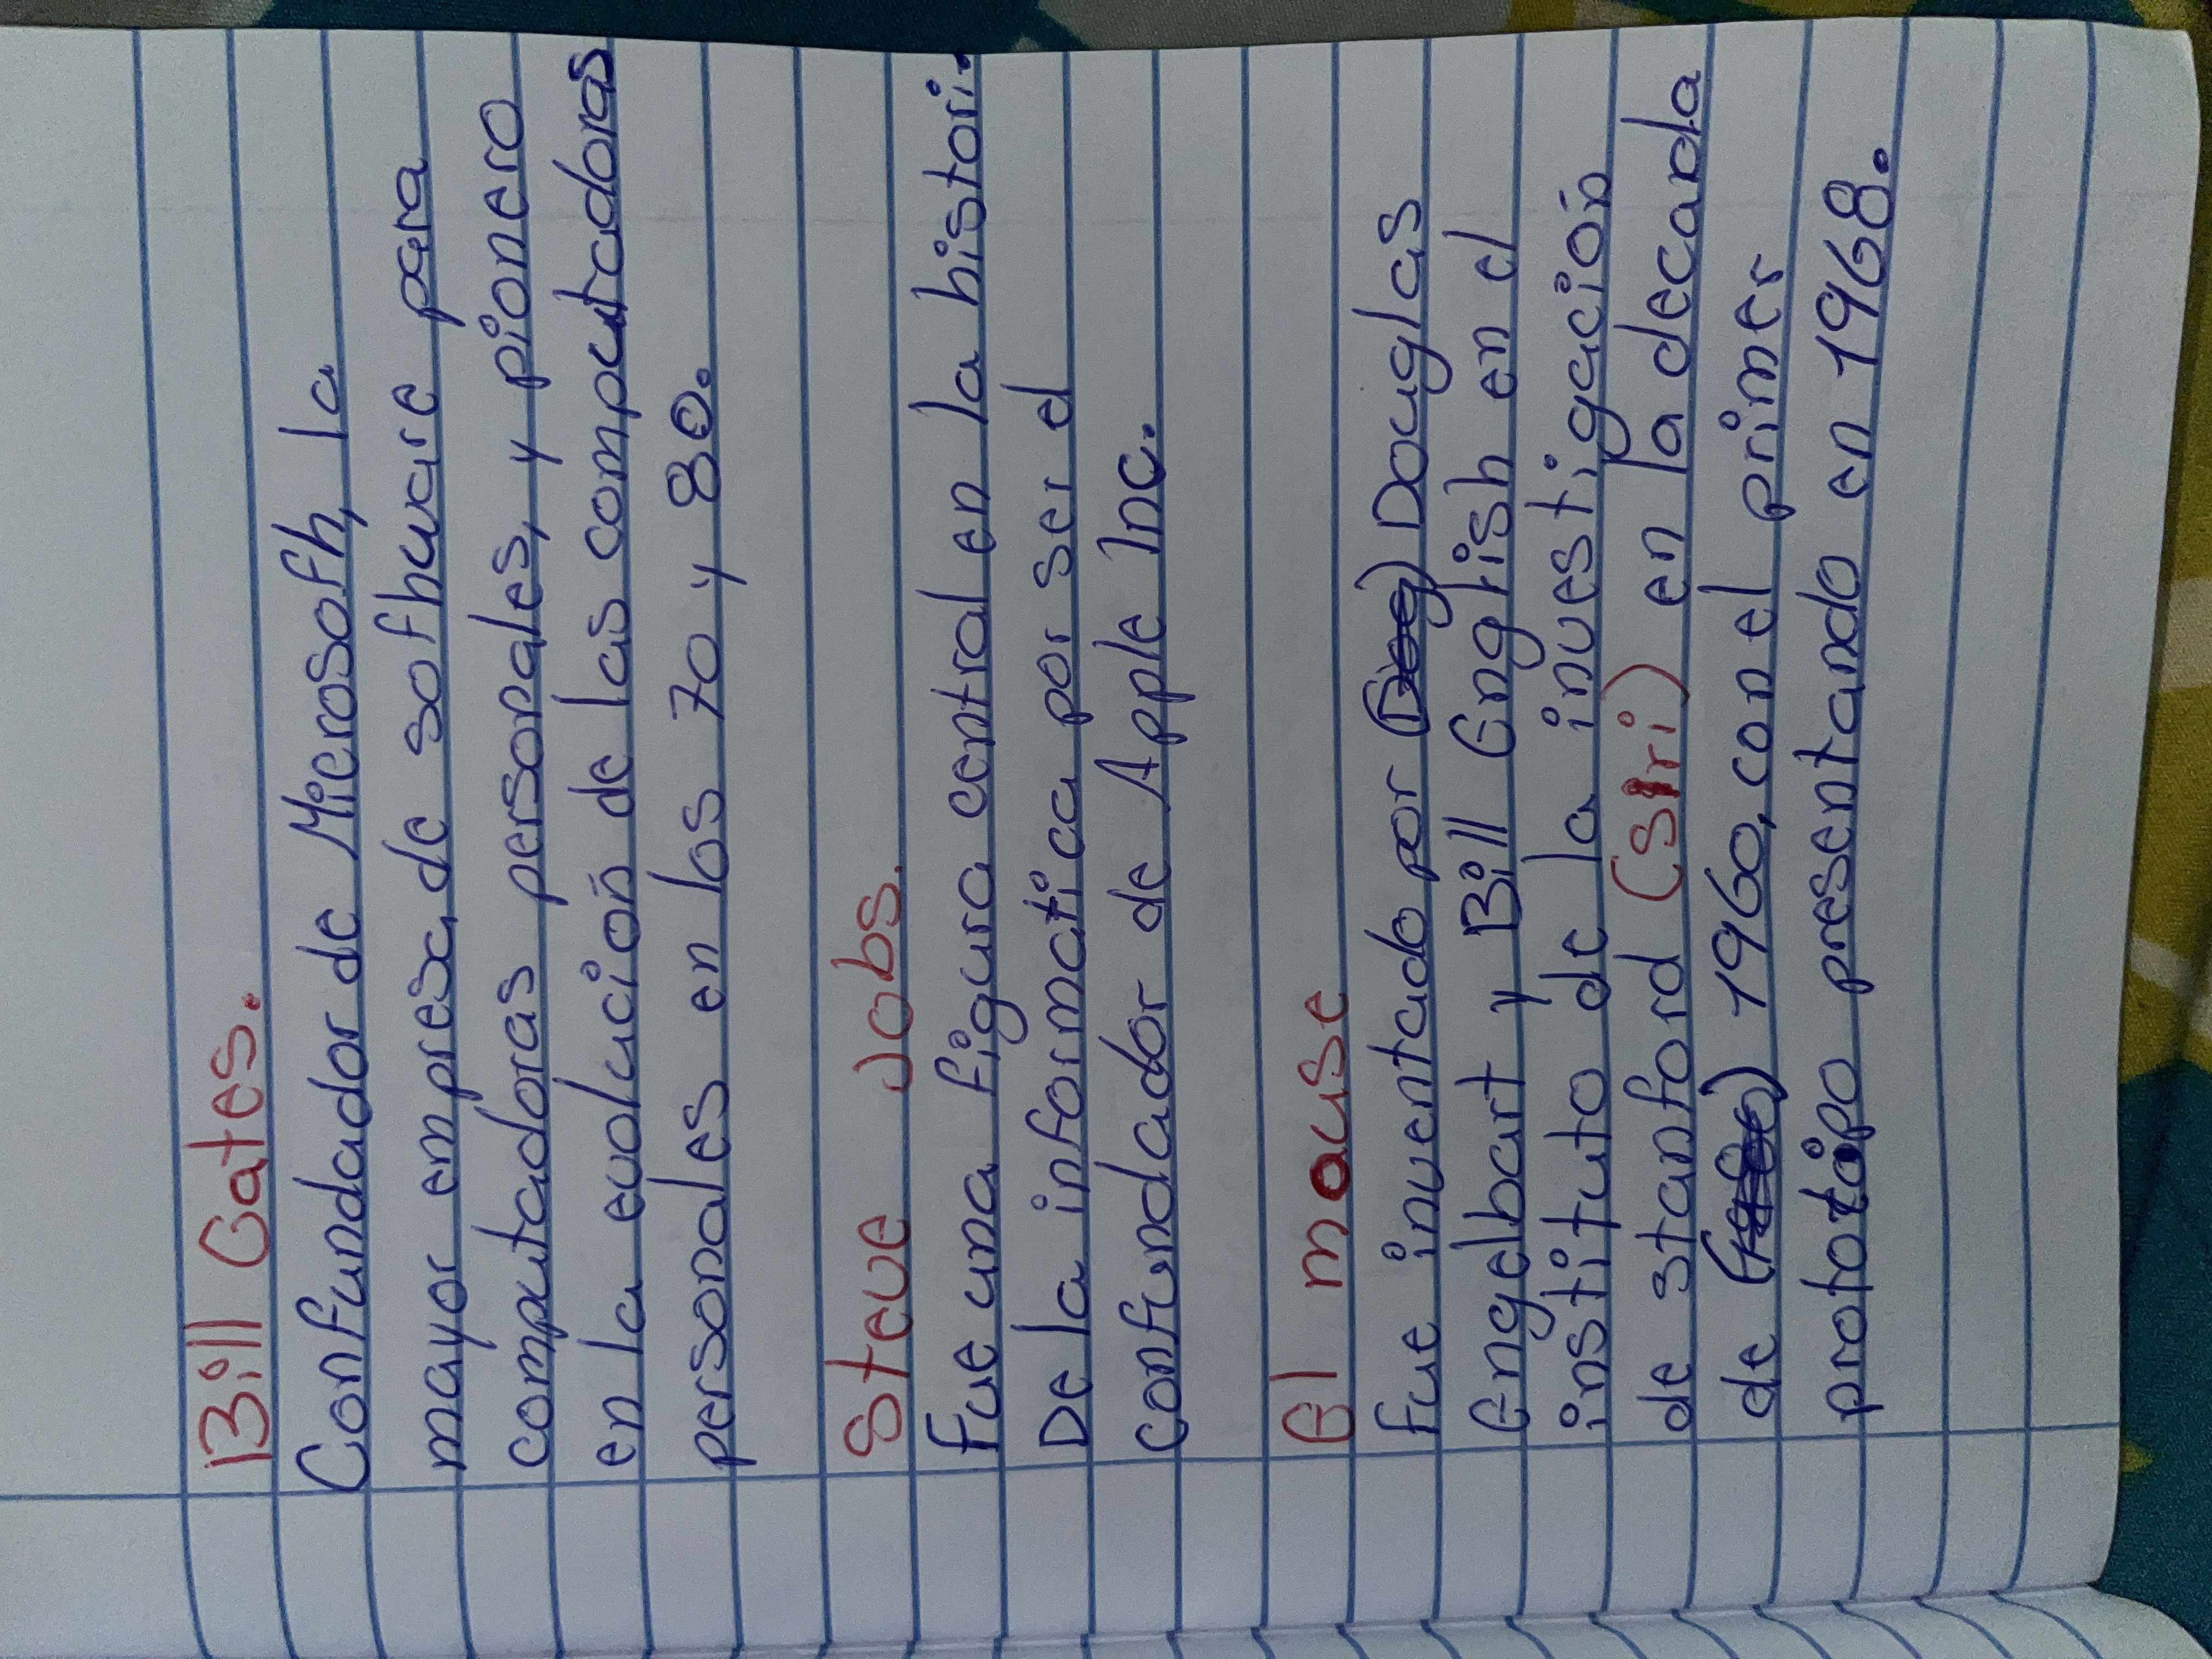 Bill Gates.
Confundador de Microsofh, la
mayor empresa, de sofhware para
computadoras personales, y pionero
en la evolución de las computadoras
personales en los 70 y 80.
Steve Jobs.
Fue una figura central en la histori.
De la informática por ser el
confundador de Apple Inc.
El mouse
fue inventado por (Doug) Douglas
Engelbart y Bill English en el
instituto de la investigación
de stanford (sIri) en la decanda
de 1960, con el primer
prototipo presentando en 1968.